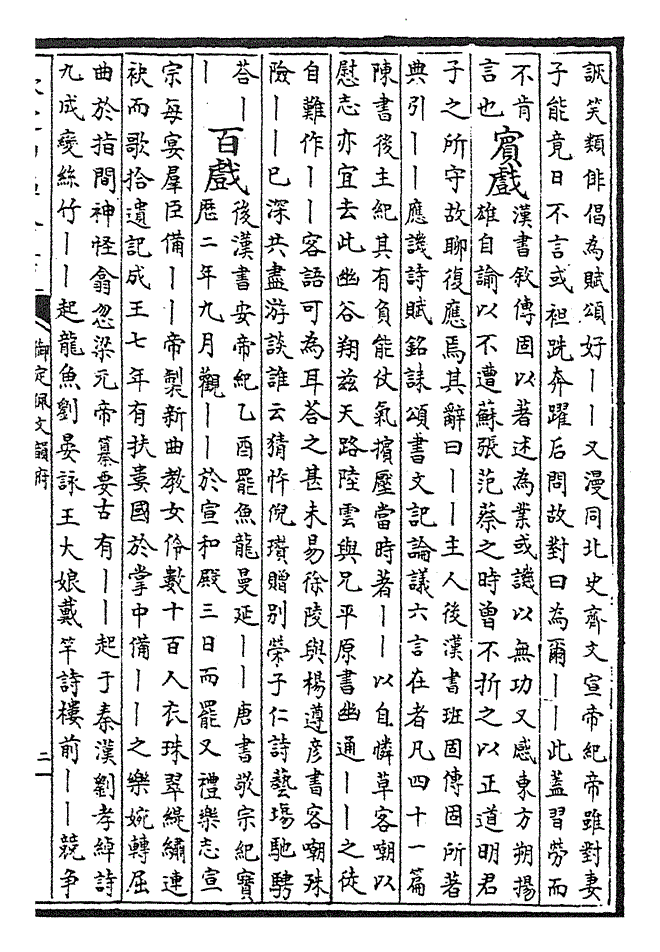 詼笑類俳倡為賦頌好〡〡又漫同北史齊文宣帝紀帝雖對妻
子能竟日不言或袒跣奔躍后問故對曰為爾〡〡此蓋習勞而
不肯
言也
賓戲
漢書敘傳固以著述為業或譏以無功又感東方朔揚
雄自諭以不遭蘇張范蔡之時曾不折之以正道明君
子之所守故聊復應焉其辭曰〡〡主人後漢書班固傳固所著
典引〡〡應譏詩賦銘誄頌書文記論議六言在者凡四十一篇
陳書後主紀其有負能仗氣擯壓當時著〡〡以自憐草客嘲以
慰志亦宜去此幽谷翔兹天路陸雲與兄平原書幽通〡〡之徒
自難作〡〡客語可為耳荅之甚未易徐陵與楊遵彦書客嘲殊
險〡〡已深共盡游談誰云猜忤倪瓚贈别榮子仁詩藝塲馳騁
荅〡
〡
百戲
後漢書安帝紀乙酉罷魚龍曼延〡〡唐書敬宗紀寶
歴二年九月觀〡〡於宣和殿三日而罷又禮樂志宣
宗每宴羣臣備〡〡帝製新曲教女伶數十百人衣珠翠緹繡連
袂而歌拾遺記成王七年有扶婁國於掌中備〡〡之樂婉轉屈
曲於指間神怪翕忽梁元帝纂要古有〡〡起于秦漢劉孝綽詩
九成變絲竹〡〡起龍魚劉晏詠王大娘戴竿詩樓前〡〡競争
御定佩文韻府
二